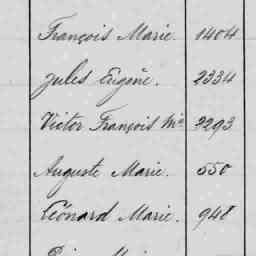 François Marie. 1404
Jules Eugène. 2334
Victor François Mie 2293
Auguste Marie. 550
Léonard Marie. 948